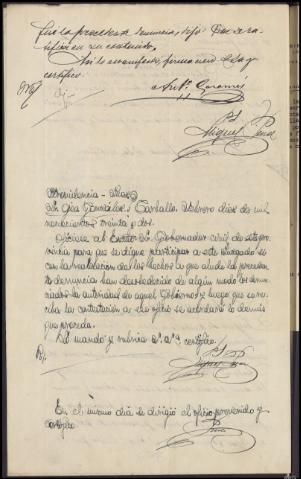 fué la precedente denuncia, dijo: Que se ra-
tifica en su contenido.
Así lo manifiesta, firma no Sª Sª y
certifico.
Antº Caramés
Miguel Pena
Providencia - Juez
Sr. Gea González. Carballo, Febrero diez de mil
novecientos treinta y dos.
Oficiese al Excmo Sr. Gobernador civil de esta pro-
vincia para que se digne participar a este Juzgado si
con la realización de los hechos a que alude la preceden-
te denuncia han desobedecido de algún modo los denun-
ciados la autoridad de aquel Gobierno, y luego que se re-
ciba la contestación a ese oficio se acordará lo demás
que proceda.
Lo mandó y rubrica Sª Sª, certifico.
Miguel Pena
En el mismo día se dirigió el oficio prevenido y
certifico.
Pena